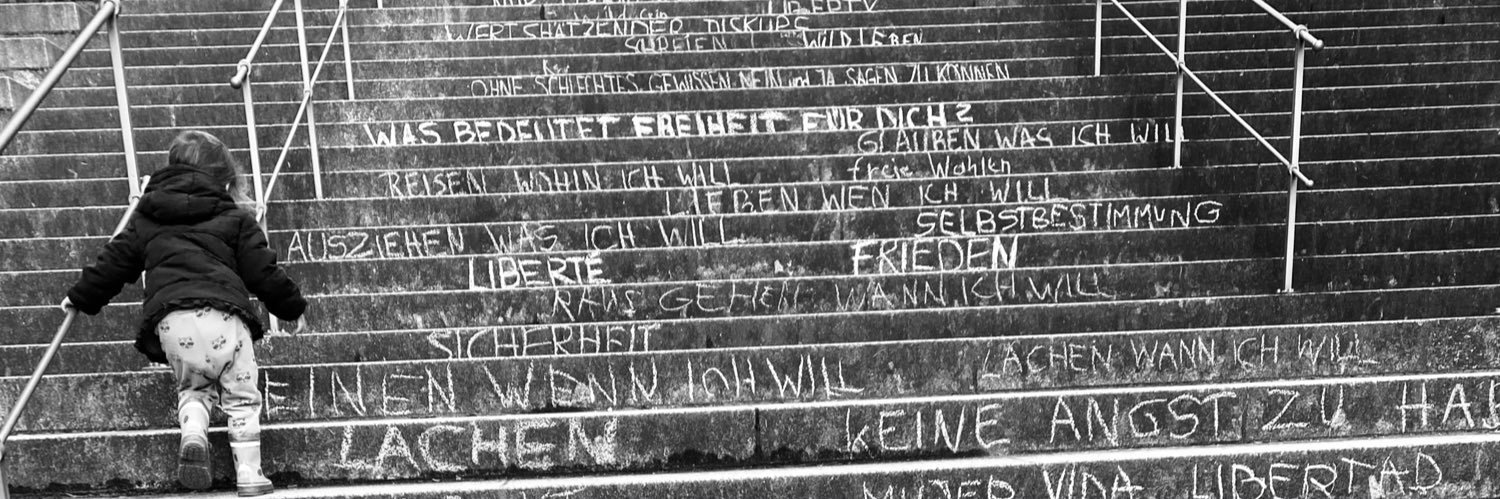 LIBERTY
WERTSCHÄTZENDER DISKURS
SCHREIEN WILD LEBEN
OHNE SCHLECHTES GEWISSEN NEIN und JA SAGEN ZU KÖNNEN
WAS BEDEUTET FREIHEIT FÜR DICH?
GLAUBEN WAS ICH WILL
REISEN WOHIN ICH WILL freie Wahlen
LIEBEN WEN ICH WILL
SELBSTBESTIMMUNG
AUSZIEHEN WAS ICH WILL
LIBERTÉ FRIEDEN
RAUS GEHEN WANN ICH WILL
SICHERHEIT
LACHEN WANN ICH WILL
EINEN WENN ICH WILL
LACHEN KEINE ANGST ZU HAB
MUJER VIDA LIBERTAD